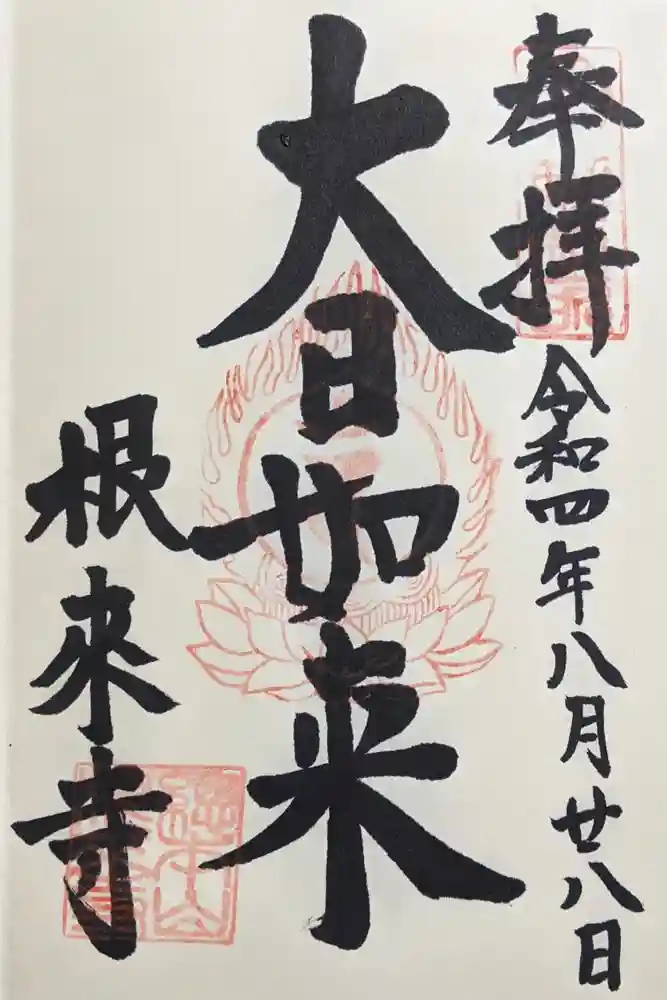 奉拝
令和四年八月廿八日
大日如来
根來寺